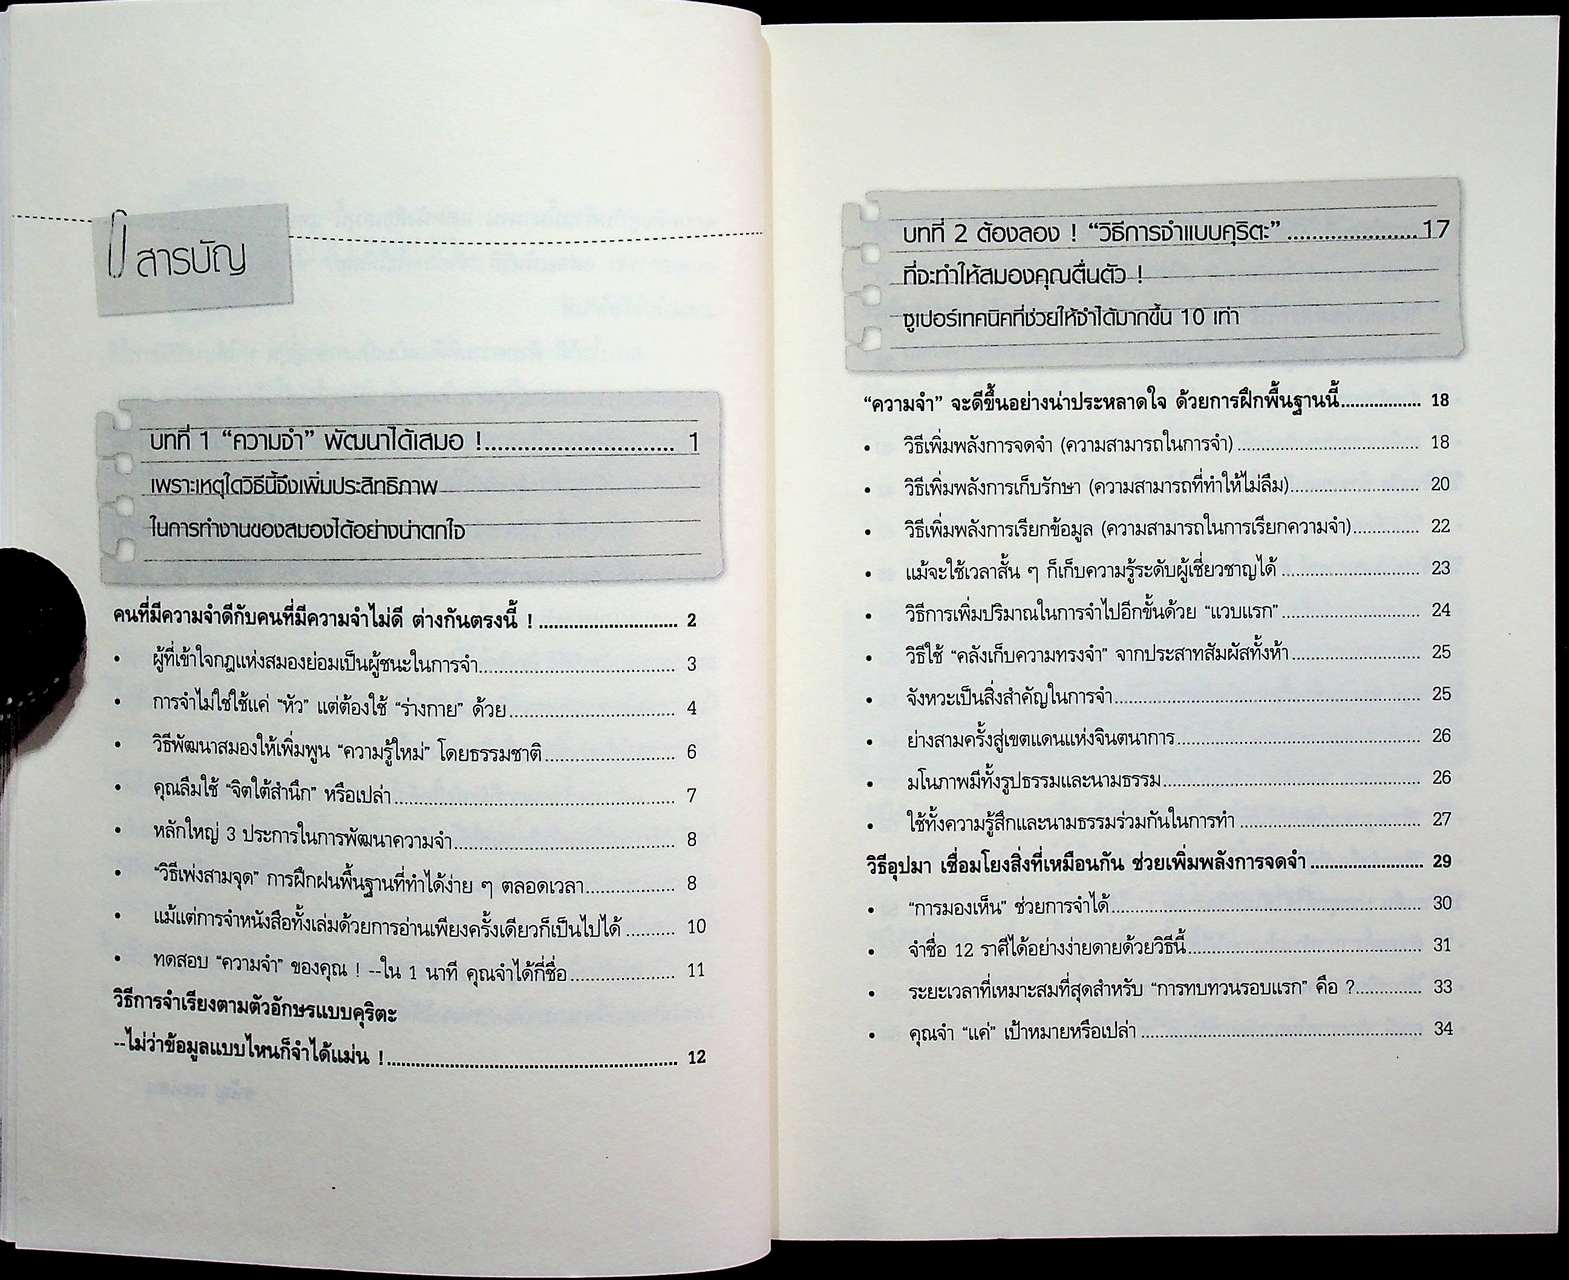 สารบัญ
บทที่ 1 “ความจำ” พัฒนาได้เสมอ !............................. 1
เพราะเหตุใดวิธีนี้จึงเพิ่มประสิทธิภาพ
ในการทำงานของสมองได้อย่างน่าตกใจ
คนที่มีความจำดีกับคนที่มีความจำไม่ดี ต่างกันตรงนี้ !............................ 2
• ผู้ที่เข้าใจกฎแห่งสมองย่อมเป็นผู้ชนะในการจำ........................................ 3
• การจำไม่ใช่ใช้แค่ “หัว” แต่ต้องใช้ “ร่างกาย” ด้วย.................................. 4
• วิธีพัฒนาสมองให้เพิ่มพูน “ความรู้ใหม่” โดยธรรมชาติ........................... 6
• คุณลืมใช้ “จิตใต้สำนึก” หรือเปล่า......................................................... 7
• หลักใหญ่ 3 ประการในการพัฒนาความจำ............................................. 8
• “วิธีเพ่งสามจุด” การฝึกฝนพื้นฐานที่ทำได้ง่าย ๆ ตลอดเวลา................... 8
• แม้แต่การจำหนังสือทั้งเล่มด้วยการอ่านเพียงครั้งเดียวก็เป็นไปได้.......... 10
• ทดสอบ “ความจำ” ของคุณ ! --ใน 1 นาที คุณจำได้กี่ชื่อ...................... 11
วิธีการจำเรียงตามตัวอักษรแบบคุริตะ
--ไม่ว่าข้อมูลแบบไหนก็จำได้แม่น !.......................................................... 12
บทที่ 2 ต้องลอง ! “วิธีการจำแบบคุริตะ” ......................17
ที่จะทำให้สมองคุณตื่นตัว !
ซูเปอร์เทคนิคที่ช่วยให้จำได้มากขึ้น 10 เท่า
“ความจำ” จะดีขึ้นอย่างน่าประหลาดใจ ด้วยการฝึกพื้นฐานนี้................. 18
• วิธีเพิ่มพลังการจดจำ (ความสามารถในการจำ)..................................... 18
• วิธีเพิ่มพลังการเก็บรักษา (ความสามารถที่ทำให้ไม่ลืม).......................... 20
• วิธีเพิ่มพลังการเรียกข้อมูล (ความสามารถในการเรียกความจำ).............. 22
• แม้จะใช้เวลาสั้น ๆ ก็เก็บความรู้ระดับผู้เชี่ยวชาญได้............................ 23
• วิธีการเพิ่มปริมาณในการจำไปอีกขั้นด้วย “แวบแรก”............................ 24
• วิธีใช้ “คลังเก็บความทรงจำ” จากประสาทสัมผัสทั้งห้า.......................... 25
• จังหวะเป็นสิ่งสำคัญในการจำ.............................................................. 25
• ย่างสามครั้งสู่เขตแดนแห่งจินตนาการ................................................. 26
• มโนภาพมีทั้งรูปธรรมและนามธรรม.................................................... 26
• ใช้ทั้งความรู้สึกและนามธรรมร่วมกันในการทำ..................................... 27
วิธีอุปมา เชื่อมโยงสิ่งที่เหมือนกัน ช่วยเพิ่มพลังการจดจำ........................ 29
• “การมองเห็น” ช่วยการจำได้............................................................... 30
• จำชื่อ 12 ราศีได้อย่างง่ายดายด้วยวิธีนี้............................................... 31
• ระยะเวลาที่เหมาะสมที่สุดสำหรับ “การทบทวนรอบแรก” คือ ?............. 33
• คุณจำ “แค่” เป้าหมายหรือเปล่า........................................................ 34